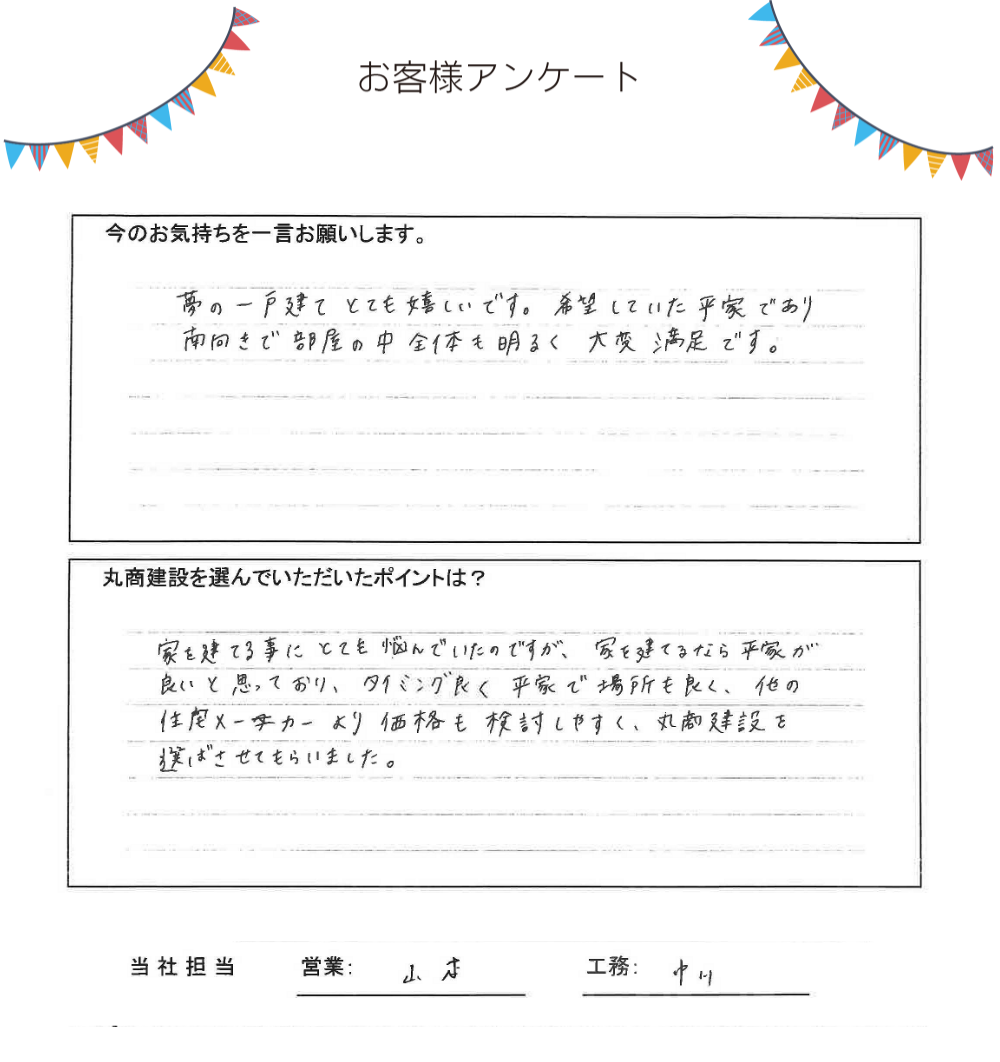 お客様アンケート
今のお気持ちを一言お願いします。
夢の一戸建てとても嬉しいです。希望していた平家であり
南向きで部屋の中全体も明るく大変満足です。
丸商建設を選んでいただいたポイントは？
家を建てる事にとても悩んでいたのですが、家を建てるなら平家が
良いと思っており、タイミング良く平家で場所も良く、他の
住宅メーカーより価格も検討しやすく、丸商建設を
選ばさせてもらいました。
当社担当 営業: 山 工務: 中川